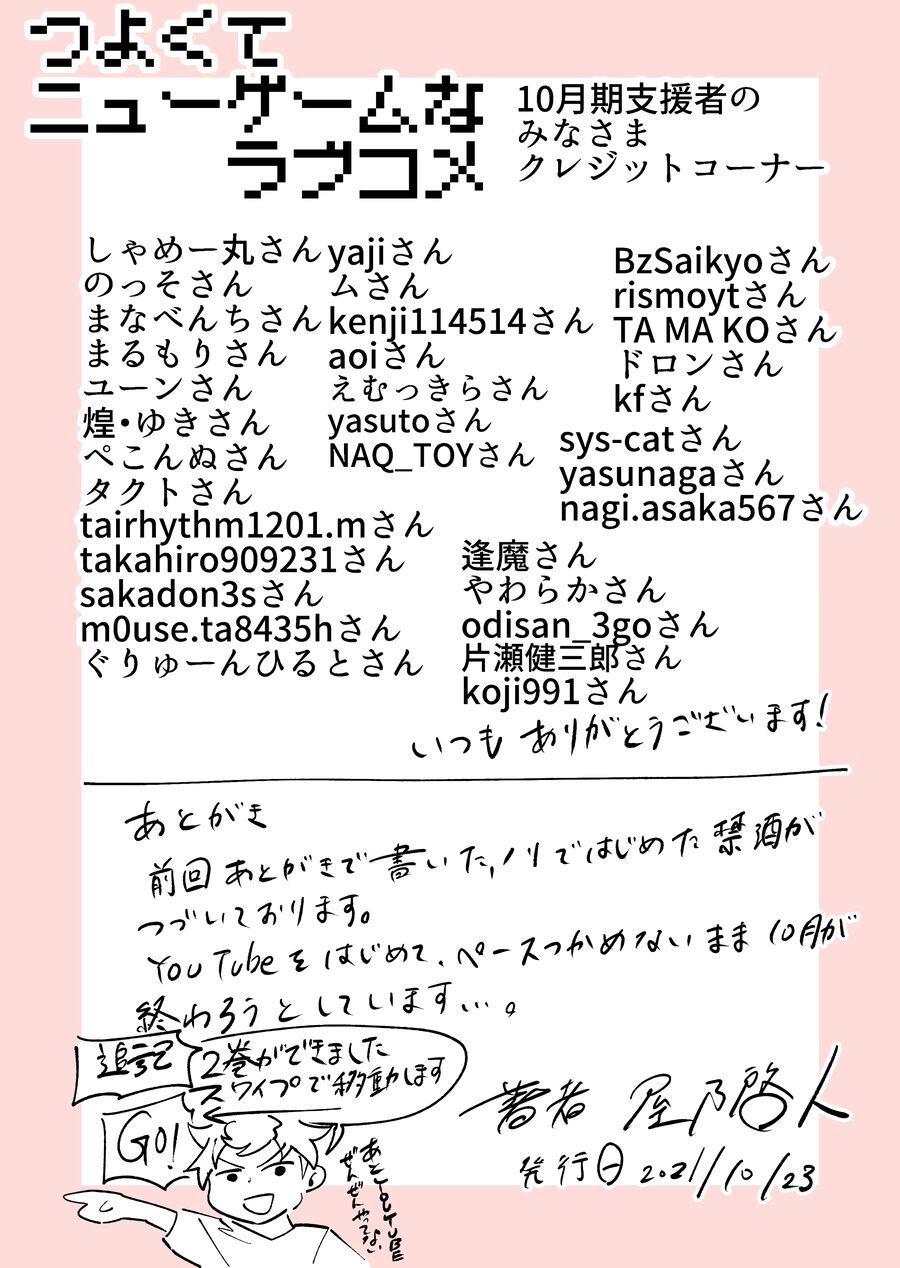 つよくて
ニューゲームな
ラブコメ
10月期支援者の
みなさま
クレジットコーナー
しゃめー丸さん
のっそさん
まなべんちさん
まるもりさん
ユーンさん
煌・ゆきさん
ぺこんぬさん
タクトさん
tairhythm1201.mさん
takahiro909231さん
sakadon3sさん
m0use.ta8435hさん
ぐりゅーんひるとさん
yajiさん
ムさん
kenji114514さん
aoiさん
えむっきらさん
yasutoさん
NAQ_TOYさん
BzSaikyoさん
rismoytさん
TA MA KOさん
ドロンさん
kfさん
sys-catさん
yasunagaさん
nagi.asaka567さん
逢魔さん
やわらかさん
odisan_3goさん
片瀬健三郎さん
koji991さん
いつも ありがとうございます!
あとがき
前回あとがきで書いた、ノリではじめた禁酒が
つづいております。
YouTubeをはじめて、ペースつかめないまま10月が
終わろうとしています…。
追記
2巻ができました
スワイプで移動します
GO!
あとYOUTUBE
ぜんぜんやってない
著者 屋乃啓人
発行日 2021/10/23